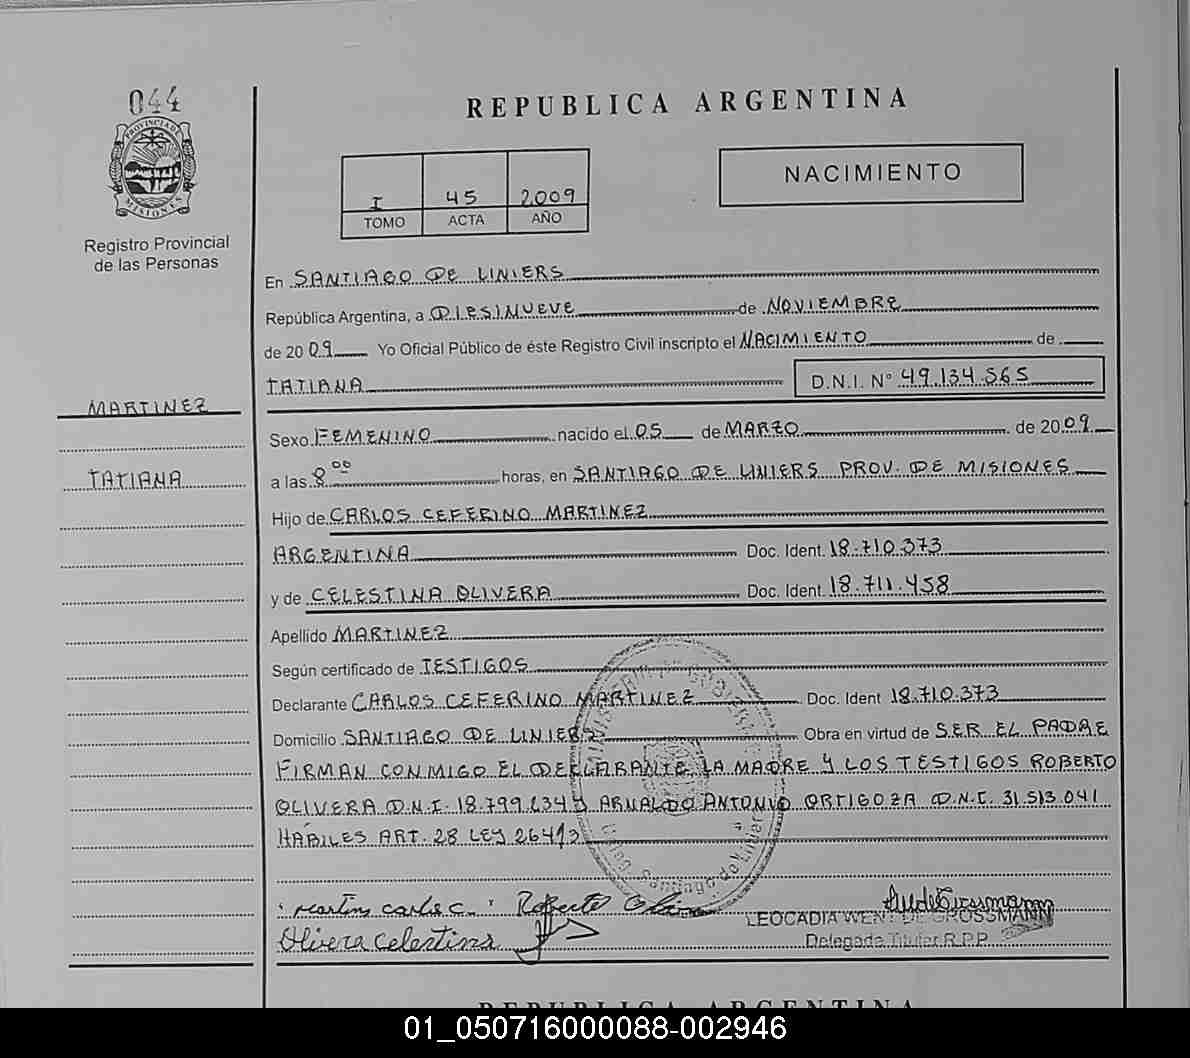 044
PROVINCIA DE
MISIONES
Registro Provincial
de las Personas
MARTINEZ
TATIANA
REPUBLICA ARGENTINA
I 45 2009
TOMO ACTA AÑO
NACIMIENTO
En SANTIAGO DE LINIERS
República Argentina, a DIESINUEVE de NOVIEMBRE
de 2009 Yo Oficial Público de éste Registro Civil inscripto el NACIMIENTO de
TATIANA D.N.I. N° 49.134.565
Sexo FEMENINO nacido el 05 de MARZO de 2009
a las 8⁰⁰ horas, en SANTIAGO DE LINIERS PROV. DE MISIONES
Hijo de CARLOS CEFERINO MARTINEZ
ARGENTINA Doc. Ident. 18.710.373
y de CELESTINA OLIVERA Doc. Ident. 18.711.458
Apellido MARTINEZ
Según certificado de TESTIGOS
Declarante CARLOS CEFERINO MARTINEZ Doc. Ident 18.710.373
Domicilio SANTIAGO DE LINIERS Obra en virtud de SER EL PADRE
FIRMAN CONMIGO EL DECLARANTE LA MADRE Y LOS TESTIGOS ROBERTO
OLIVERA D.N.I. 18.799.234 Y ARNALDO ANTONIO ORTIGOZA D.N.I. 31.513.041
HÁBILES ART. 28 LEY 26413
Santiago de Liniers
Martins carlos c. Roberto
Olivera Celestina
LEOCADIA WENT DE GROSSMANN
Delegada Titular R.P.P.
REPUBLICA ARGENTINA
01_050716000088-002946